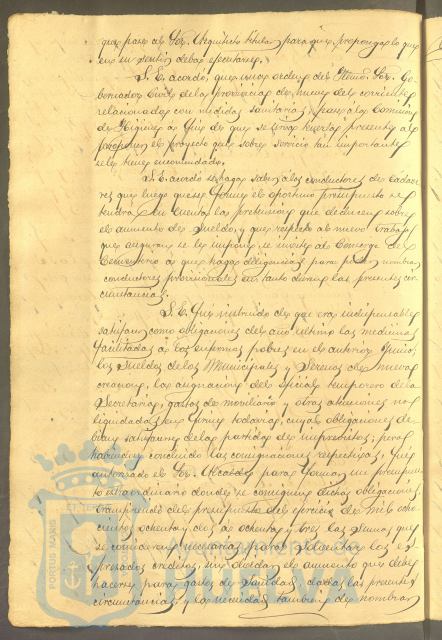 que pase al Sor. Arquitecto titular para que proponga lo que
en su sentir deba ejecutarse.
S. E. acordó, que una orden del Iltmo. Sor. Go-
bernador Civil de la Provincia de nueve del corriente
relacionada con medidas sanitarias pase a la Comisión
de Higiene a fin de que se sirva tenerla presente al
proponer el proyecto que sobre servicio tan importante
se le tiene encomendado.
S. E. acordó se haga saber a los conductores de cadave-
res que luego que se forme el oportuno presupuesto se
tendrá en cuenta la pretensión que deducen sobre
el aumento de sueldo, y que respecto al nuevo trabajo
que aseguran se les impone se invite al Conserge del
Cementerio a que haga diligencias para nombrar
conductores provisionales en tanto duran las presentes cir-
cunstancias.
S. E. fue instruido de que era indispensable
satisfacer como obligaciones del año último las medicinas
facilitadas a los enfermos pobres en el anterior Junio,
los sueldos de los Municipales y Serenos de nueva
creacion, la asignacion del oficial temporero de la
Secretaria, gastos de moviliario y otras atenciones no
liquidadas en firme todavia, cuyas obligaciones de-
bian satisfacerse de las partidas de imprevistos; pero
habiendo concluido las consignaciones respectivas, fue
autorizado el Sor. Alcalde para formar un presupues-
to extraordinario donde se consignen dichas obligaciones,
transfiriendo del presupuesto del ejercicio de mil ocho-
cientos ochenta y dos a ochenta y tres las sumas que
se consideren necesarias para solventar los ex-
presados creditos, sin olvidar el aumento que debe
hacerse para gastos de Sanidad dadas las presentes
circunstancias y la necesidad tambien de nombrar
PORTUS MARIS ET TERRAE
Ayuntamiento de
HUELVA